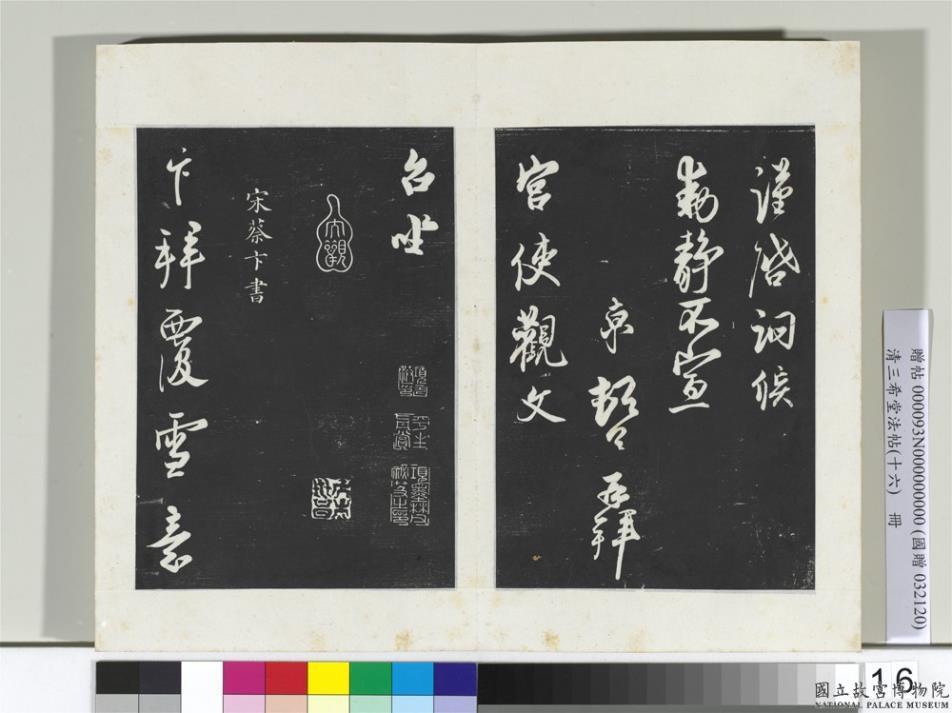 謹啓詞候
動靜不宣
京頓首再拜
宮使觀文
台坐
大觀
宋蔡卞書
卞拜覆雪意
贈帖 000093N000000000 (國贈 032120)
清三希堂法帖(十六) 冊
16
國立故宮博物院
NATIONAL PALACE MUSEUM